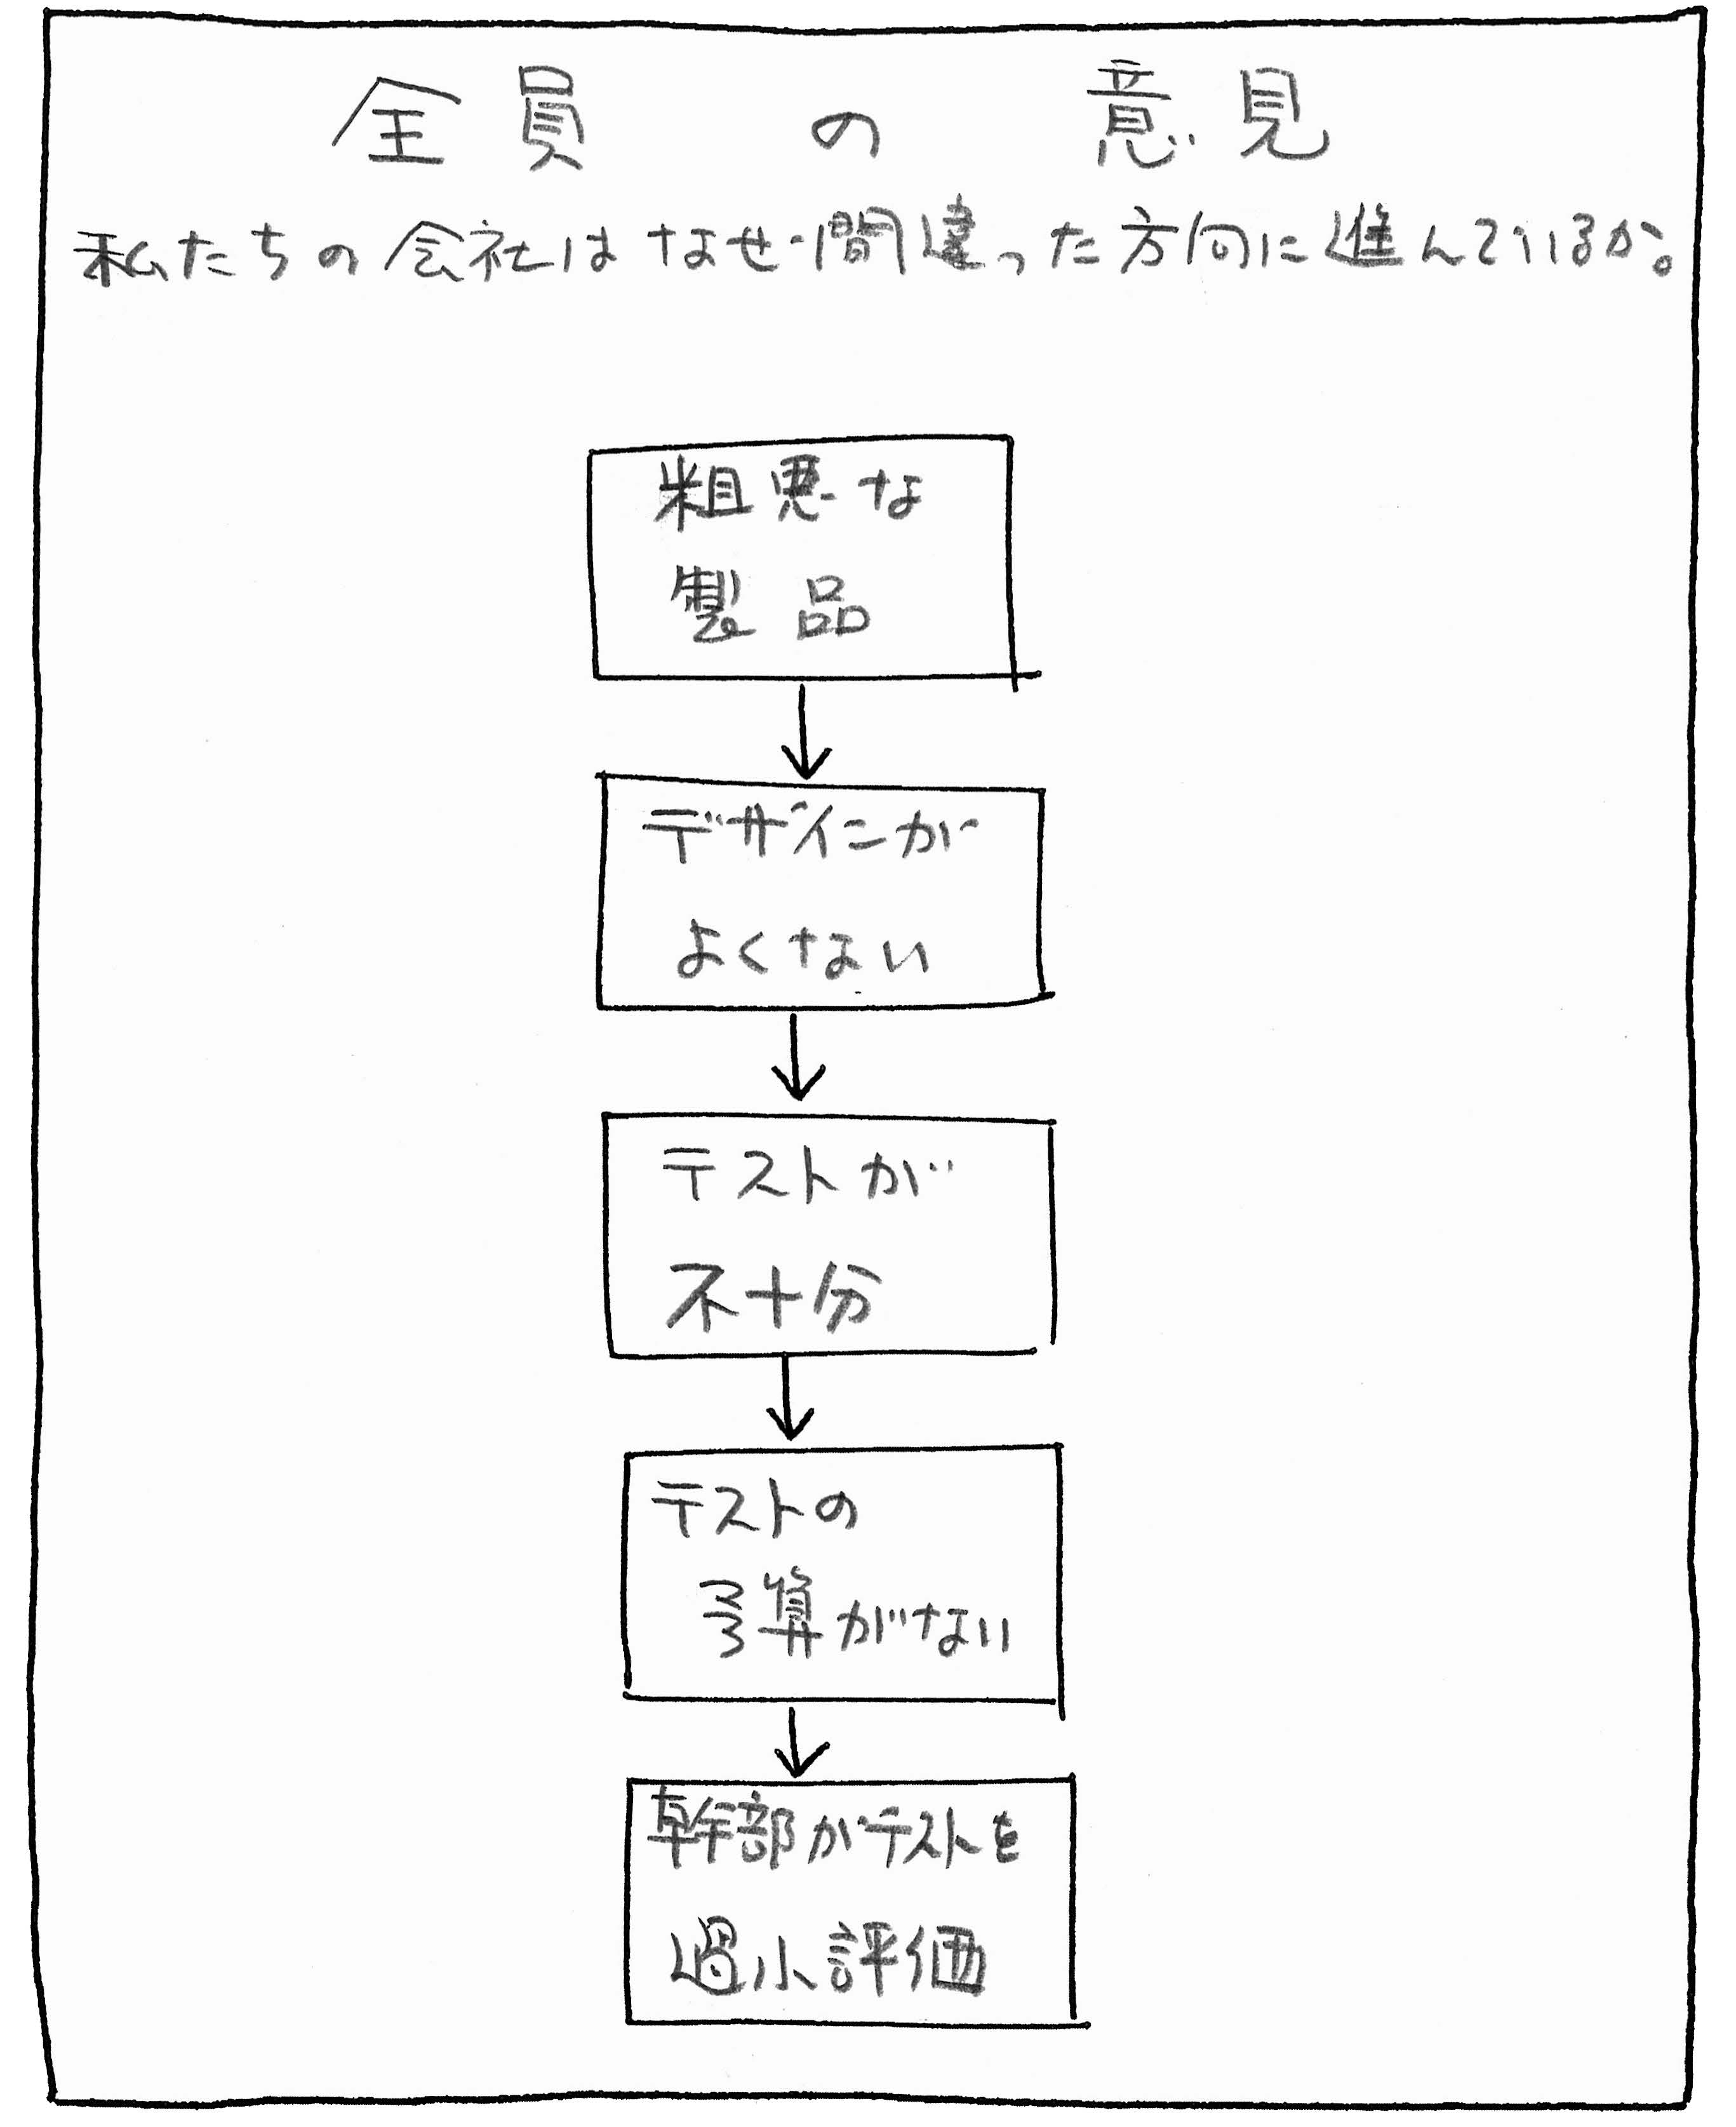 全員の意見
私たちの会社はなぜ間違った方向に進んでいるか。
粗悪な
製品
デザインが
よくない
テストが
不十分
テストの
予算がない
幹部がテストを
過小評価